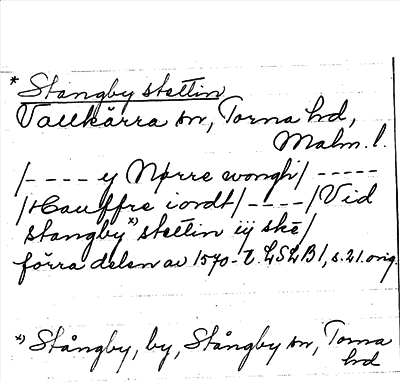 * Stångby stettin
Vallkärra sn, Torna hd,
Malm. l.
/---- y Nørre wongh/ -----
/Hauffre iordt/ ----/Vid
stangby x) stettin iij ske/
förra delen av 1570-t. LSLB1, s. 21. orig.
x) Stångby, by, Stångby sn, Torna
hd